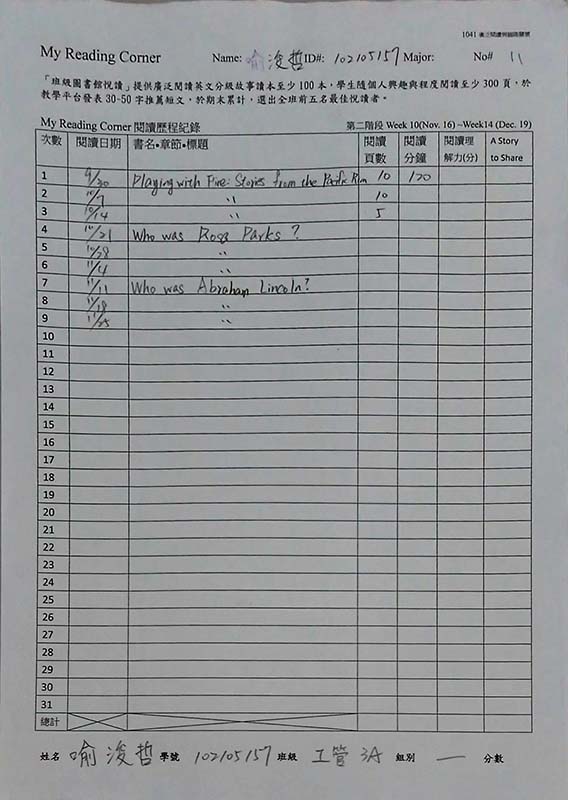 1041 廣泛閱讀與圖館閱讀
My Reading Corner Name: 喻浚哲 ID#: 102105157 Major: No# 11
「班級圖書館悅讀」提供廣泛閱讀英文分級故事讀本至少 100 本,學生隨個人興趣與程度閱讀至少 300 頁,於
教學平台發表 30-50 字推薦短文,於期末累計,選出全班前五名最佳悅讀者。
My Reading Corner 閱讀歷程紀錄 第二階段 Week 10(Nov. 16) –Week14 (Dec. 19)
次數 閱讀日期 書名•章節•標題 閱讀頁數 閱讀分鐘 閱讀理解力(分) A Story to Share
1 9/30 Playing with Fire: Stories from the Pacific Rim 10 120
2 10/7 〃 10
3 10/14 〃 5
4 10/21 Who was Rosa Parks?
5 10/28 〃
6 11/4 〃
7 11/11 Who was Abraham Lincoln?
8 11/18 〃
9 11/25 〃
10
11
12
13
14
15
16
17
18
19
20
21
22
23
24
25
26
27
28
29
30
31
總計
姓名 喻浚哲 學號 102105157 班級 工管3A 組別 一 分數